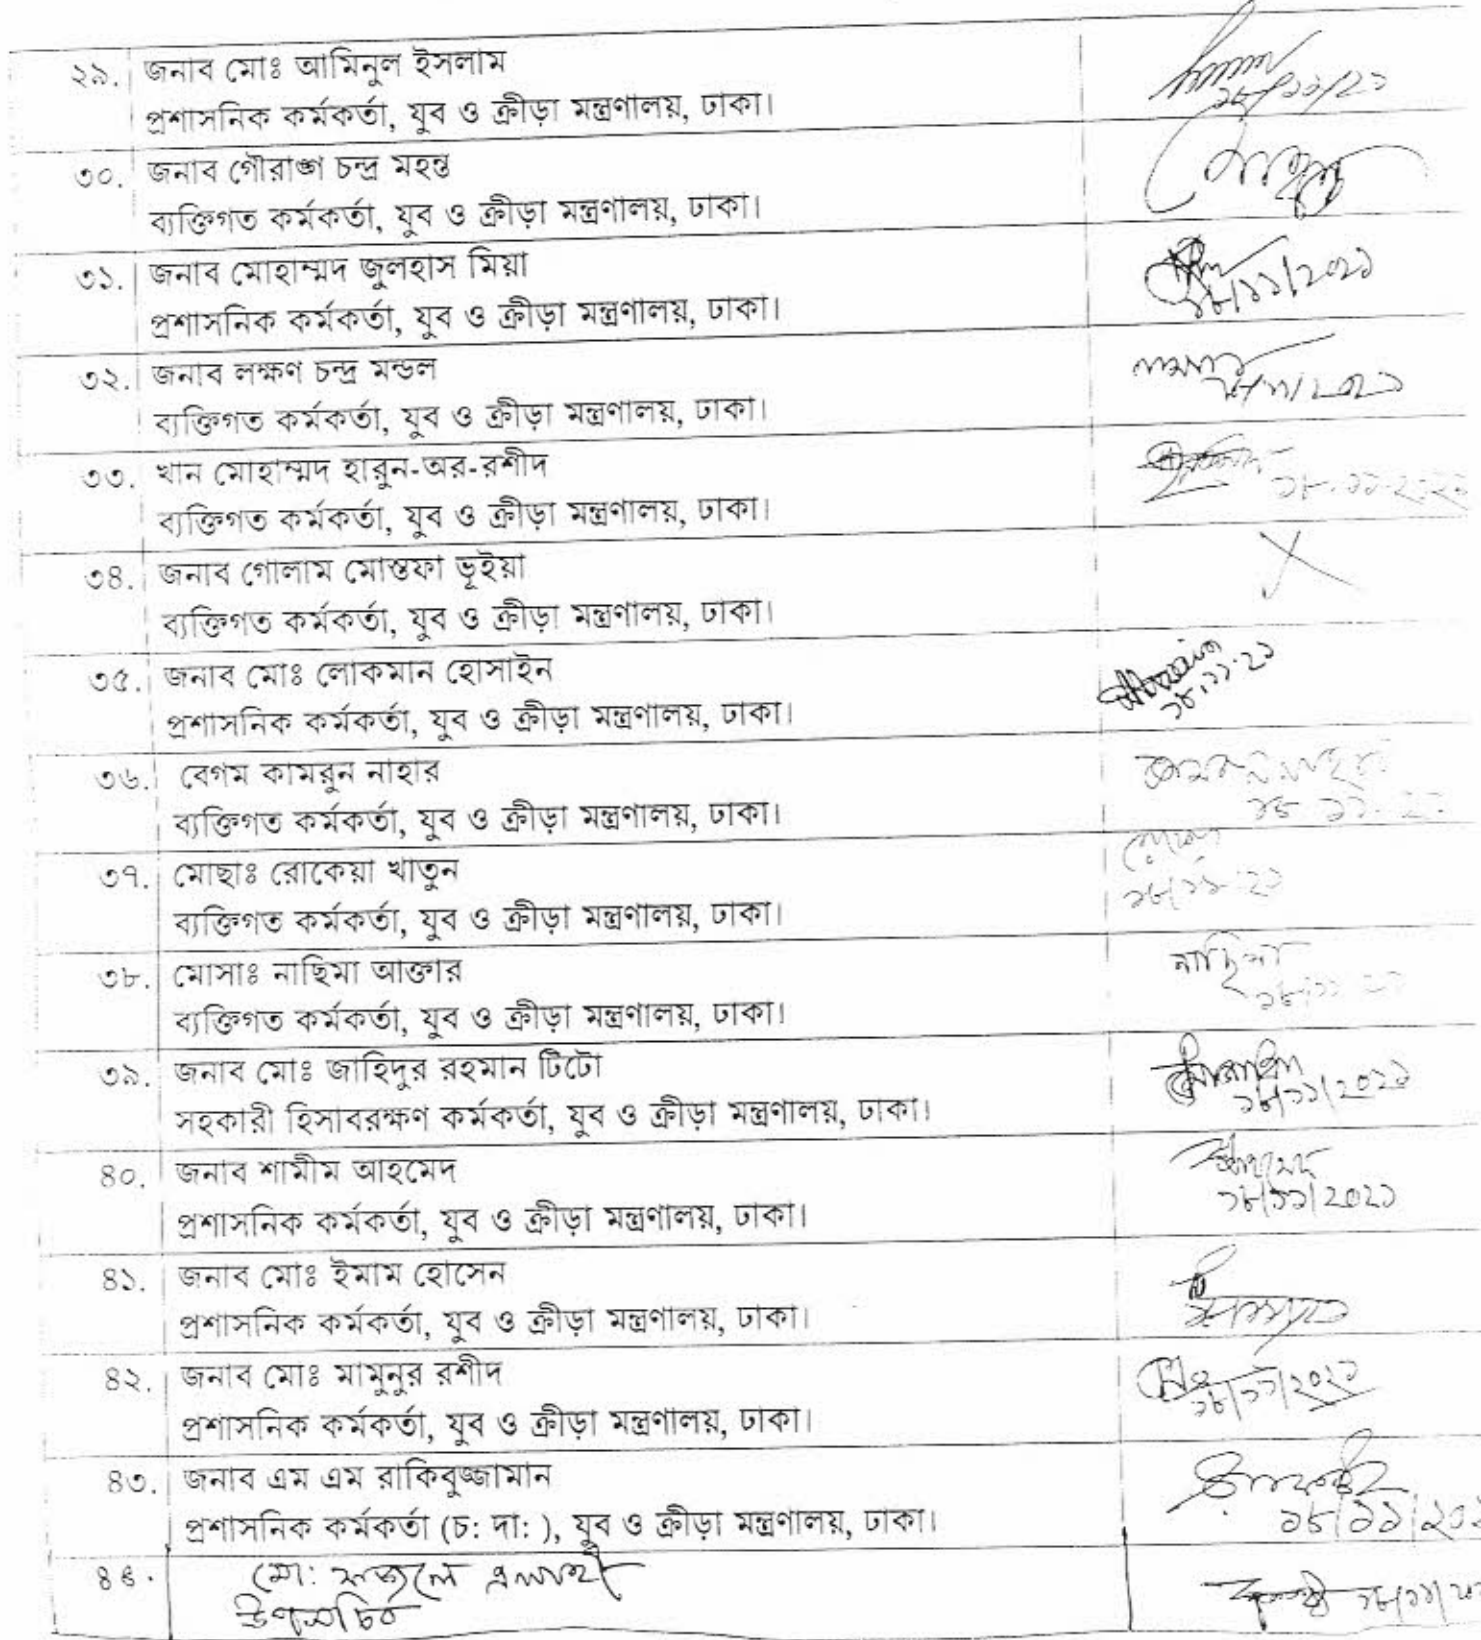 ২৯. জনাব মোঃ আমিনুল ইসলাম
প্রশাসনিক কর্মকর্তা, যুব ও ক্রীড়া মন্ত্রণালয়, ঢাকা।
১৮/১১/২১
৩০. জনাব গৌরাঙ্গ চন্দ্র মহন্ত
ব্যক্তিগত কর্মকর্তা, যুব ও ক্রীড়া মন্ত্রণালয়, ঢাকা।
৩১. জনাব মোহাম্মদ জুলহাস মিয়া
প্রশাসনিক কর্মকর্তা, যুব ও ক্রীড়া মন্ত্রণালয়, ঢাকা।
১৮/১১/২০২১
৩২. জনাব লক্ষণ চন্দ্র মন্ডল
ব্যক্তিগত কর্মকর্তা, যুব ও ক্রীড়া মন্ত্রণালয়, ঢাকা।
৩৩. খান মোহাম্মদ হারুন-অর-রশীদ
ব্যক্তিগত কর্মকর্তা, যুব ও ক্রীড়া মন্ত্রণালয়, ঢাকা।
১৮.১১.২০২১
৩৪. জনাব গোলাম মোস্তফা ভূইয়া
ব্যক্তিগত কর্মকর্তা, যুব ও ক্রীড়া মন্ত্রণালয়, ঢাকা।
৩৫. জনাব মোঃ লোকমান হোসাইন
প্রশাসনিক কর্মকর্তা, যুব ও ক্রীড়া মন্ত্রণালয়, ঢাকা।
১৮.১১.২১
৩৬. বেগম কামরুন নাহার
ব্যক্তিগত কর্মকর্তা, যুব ও ক্রীড়া মন্ত্রণালয়, ঢাকা।
১৮.১১.২১
৩৭. মোছাঃ রোকেয়া খাতুন
ব্যক্তিগত কর্মকর্তা, যুব ও ক্রীড়া মন্ত্রণালয়, ঢাকা।
৩৮. মোসাঃ নাছিমা আক্তার
নাছিমা
ব্যক্তিগত কর্মকর্তা, যুব ও ক্রীড়া মন্ত্রণালয়, ঢাকা।
৩৯. জনাব মোঃ জাহিদুর রহমান টিটো
সহকারী হিসাবরক্ষণ কর্মকর্তা, যুব ও ক্রীড়া মন্ত্রণালয়, ঢাকা।
১৮/১১/২০২১
৪০. জনাব শামীম আহমেদ
প্রশাসনিক কর্মকর্তা, যুব ও ক্রীড়া মন্ত্রণালয়, ঢাকা।
১৮/১১/২০২১
৪১. জনাব মোঃ ইমাম হোসেন
প্রশাসনিক কর্মকর্তা, যুব ও ক্রীড়া মন্ত্রণালয়, ঢাকা।
৪২. জনাব মোঃ মামুনুর রশীদ
প্রশাসনিক কর্মকর্তা, যুব ও ক্রীড়া মন্ত্রণালয়, ঢাকা।
১৮/১১/২০২১
৪৩. জনাব এম এম রাকিবুজ্জামান
প্রশাসনিক কর্মকর্তা (চ: দা: ), যুব ও ক্রীড়া মন্ত্রণালয়, ঢাকা।
৪৪. মো: ফজলে এলাহী
উপসচিব